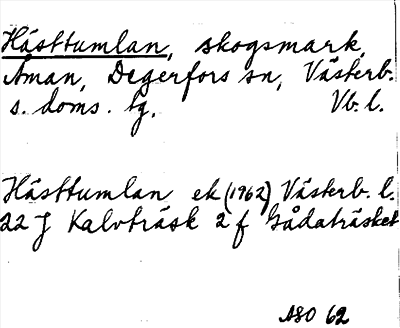 Hästtumlan, skogsmark,
Åman, Degerfors sn, Västerb.
s. doms. tg. Vb. l.
Hästtumlan ek (1962) Västerb. l.
22 J Kalvträsk 2 f Gådaträsket
ASO 62